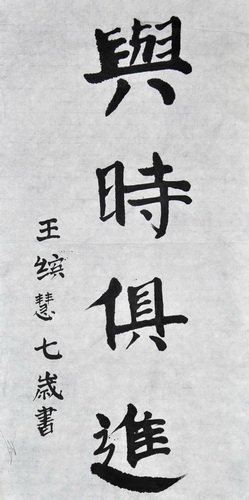 與時俱進
王缤慧七歲書